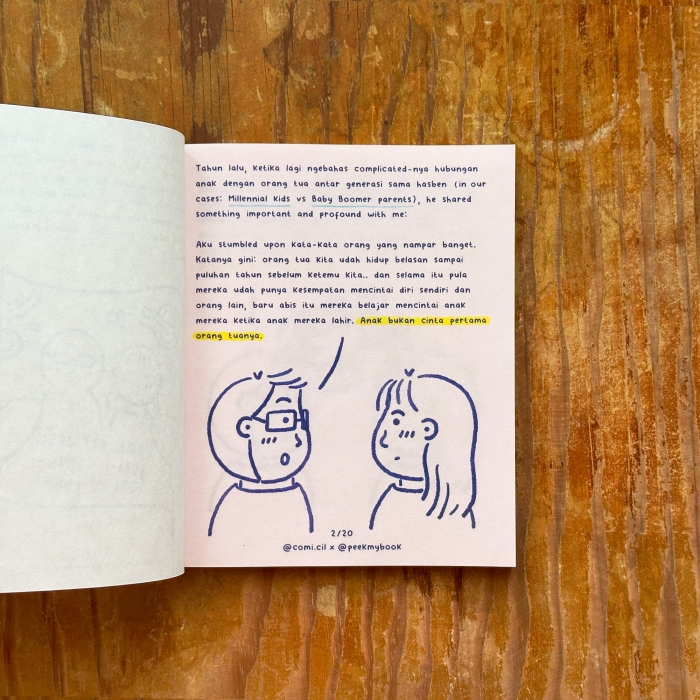 Tahun lalu, ketika lagi ngebahas complicated-nya hubungan
anak dengan orang tua antar generasi sama hasben (in our
cases: Millennial Kids vs Baby Boomer parents), he shared
something important and profound with me:
Aku stumbled upon kata-kata orang yang nampar banget.
Katanya gini: orang tua kita udah hidup belasan sampai
puluhan tahun sebelum ketemu kita.. dan selama itu pula
mereka udah punya kesempatan mencintai diri sendiri dan
orang lain, baru abis itu mereka belajar mencintai anak
mereka ketika anak mereka lahir. Anak bukan cinta pertama
orang tuanya.
2/20
@comi.cil x @peekmybook